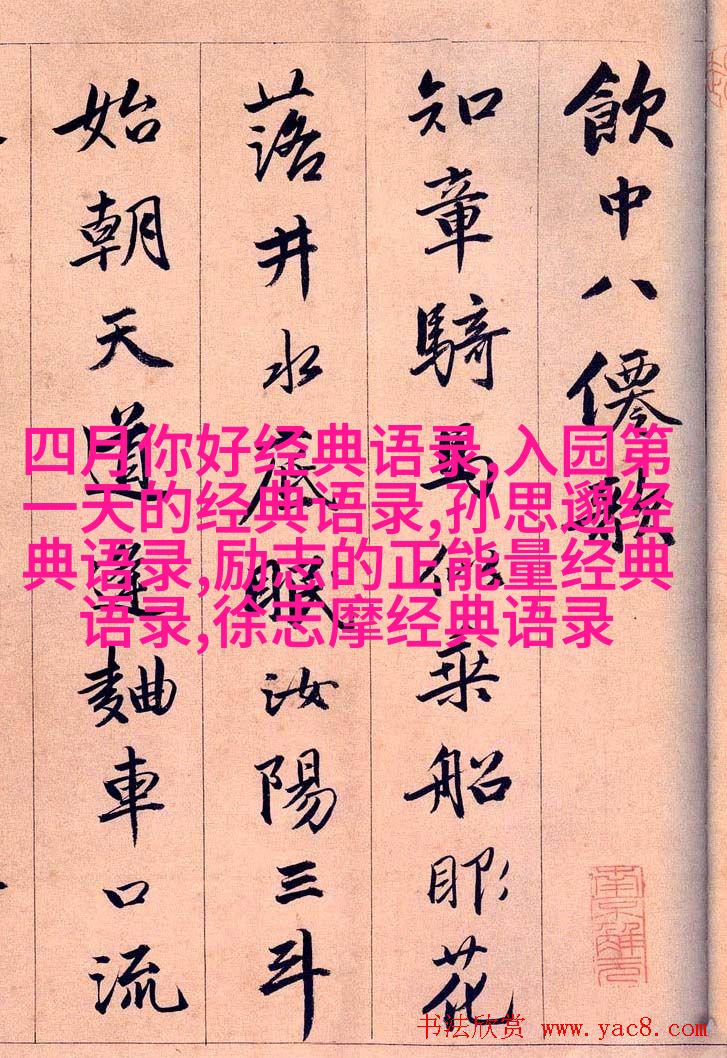 飲中八僊歌
知章騎馬似乗船眼花
落井水底眠汝陽三斗
始朝天道逢麯車口流
四月你好经典语录,入园第
一天的经典语录,孙思邈经
典语录,励志的正能量经典
语录,徐志摩经典语录
南京解元
书法欣赏 www.yac8.com